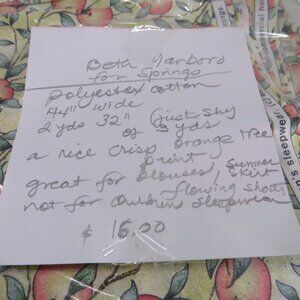 Beth Yarboro
for Springs
polyester cotton
44" wide
2 yds 32" (just shy
of 3 yds
a nice crisp orange tree
print
great for blouses, summer skirt
flowing shorts
not for childrens sleepwear
$ 16.00
is sleepwear